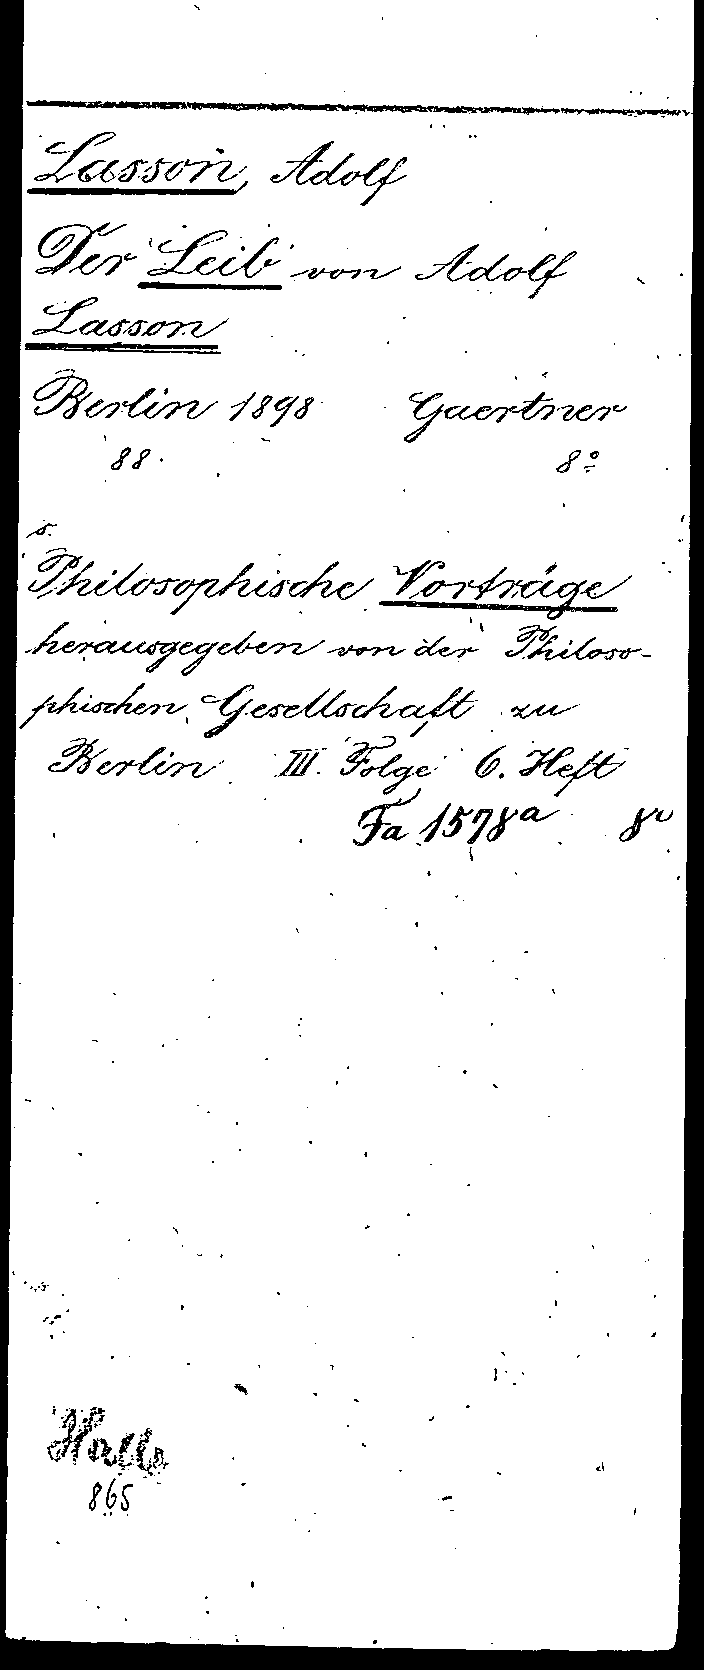 Lasson, Adolf
Der Leib von Adolf
Lasson
Berlin 1898 Gaertner
88. 8°
s.
Philosophische Vorträge
herausgegeben von der Philoso-
phischen Gesellschaft zu
Berlin III. Folge 6. Heft
Fa 1578a 8°
Halle
865